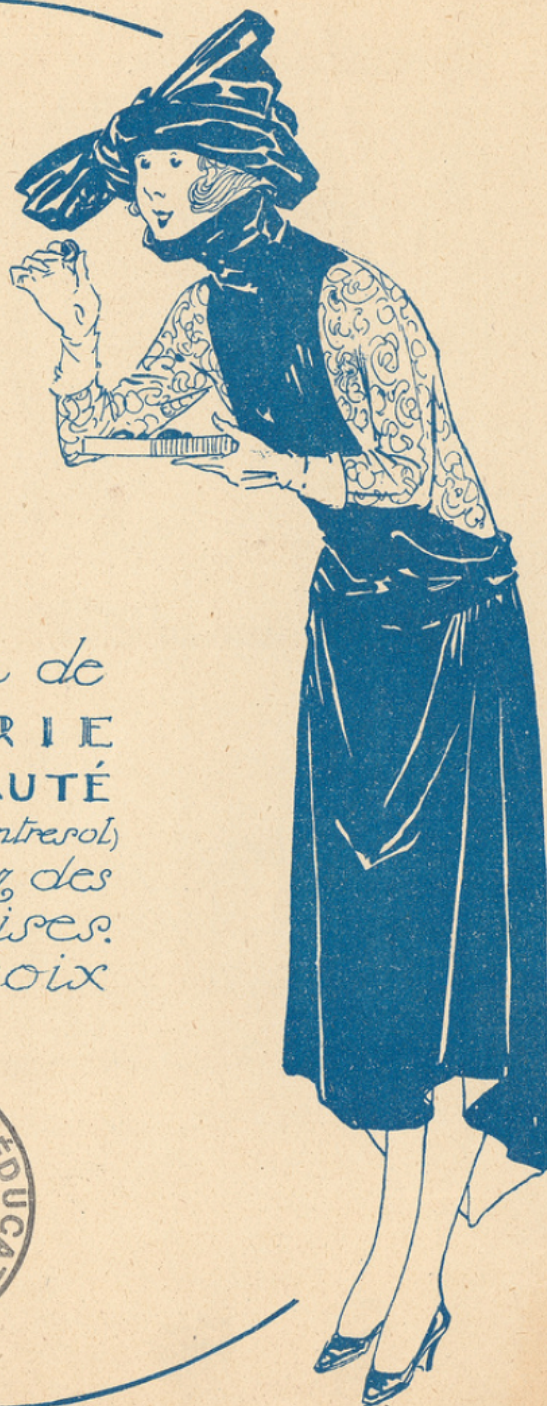 de
RIE
AUTÉ
ntresol)
des
ises.
oix
ÉDUCAT